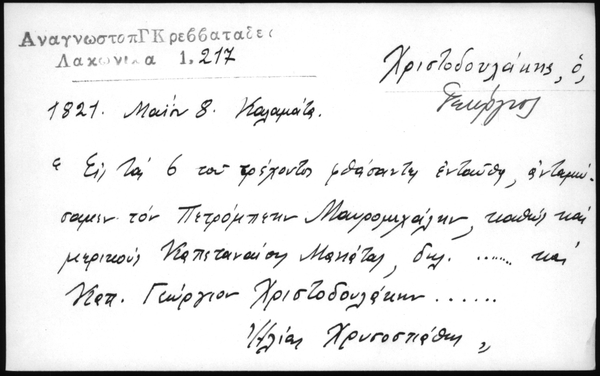 ΑναγνωστοπΓΚρεββαταδες
Λακωνικα 1, 217
Χριστοδουλάκης, ὁ,
Γεώργιος
1821. Μαΐου 8. Καλαμάτα.
" Εἰς τάς 6 τοῦ τρέχοντος φθάσαντες ἐνταῦθα, ἀνταμώ-
σαμεν τόν Πετρόμπεην Μαυρομιχάλην, καθώς καί
μερικούς Καπεταναίους Μανιάτας, δηλ. ....... καί
Καπ. Γεώργιον Χριστοδουλάκην ......
Ἠλίας Χρυσοσπάθης "